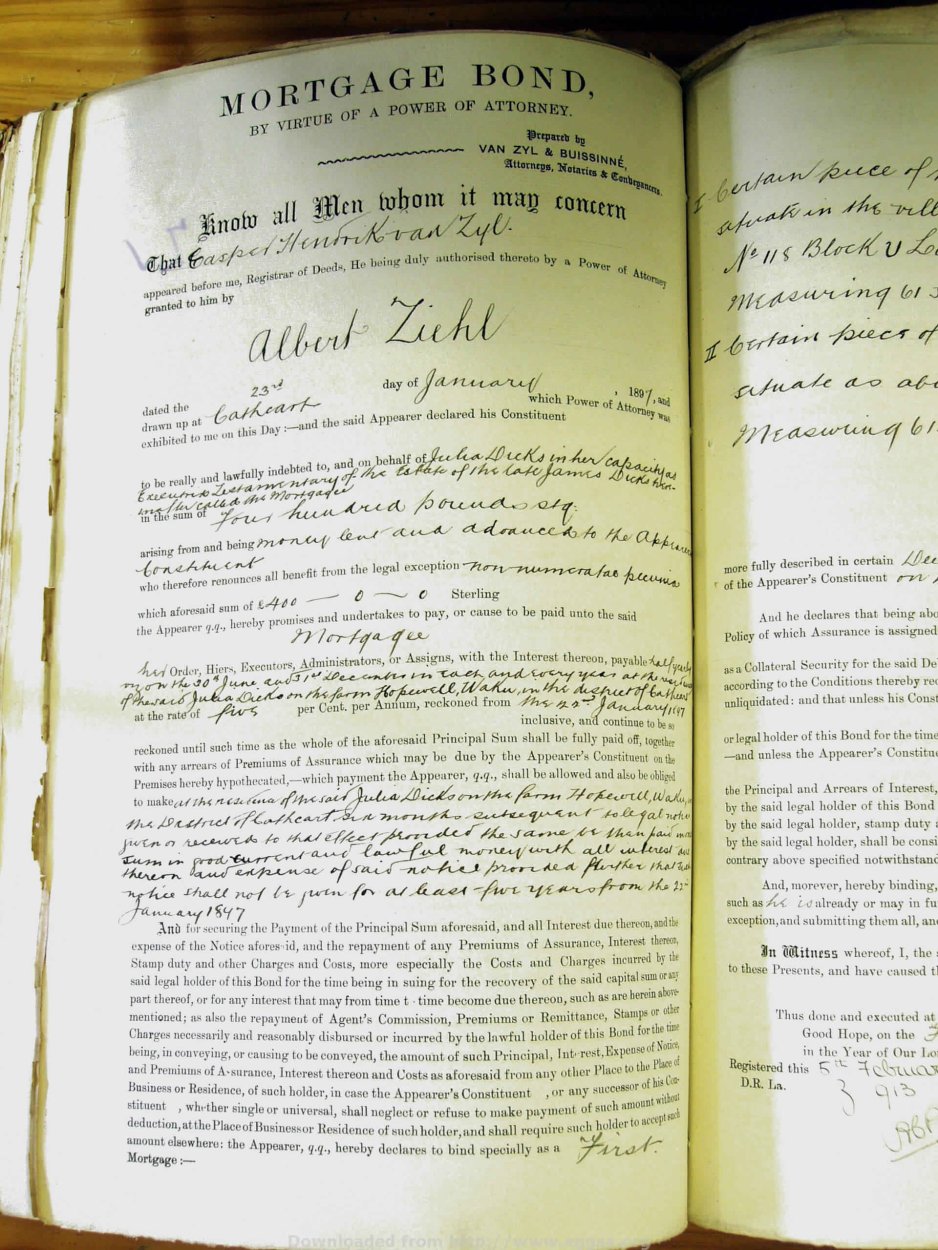 MORTGAGE BOND,
BY VIRTUE OF A POWER OF ATTORNEY.
Prepared by
VAN ZYL & BUISSINNÉ,
Attorneys, Notaries & Conveyancers.
Know all Men whom it may concern
That Casper Hendrik van Zyl.
appeared before me, Registrar of Deeds, He being duly authorised thereto by a Power of Attorney
granted to him by
Albert Ziehl
dated the 23rd day of January, 1897, and
drawn up at Cathcart which Power of Attorney was
exhibited to me on this Day :—and the said Appearer declared his Constituent
to be really and lawfully indebted to, and on behalf of Julia Dicks in her capacity as
Executrix Testamentary of the Estate of the late James Dicks herein-
after called the Mortgagee
in the sum of Four hundred pounds stg.
arising from and being money lent and advanced to the Appearer
Constituent
who therefore renounces all benefit from the legal exception non numeratae pecunia
which aforesaid sum of £400 — 0 — 0 Sterling
the Appearer q.q., hereby promises and undertakes to pay, or cause to be paid unto the said
Mortgagee
her Order, Hiers, Executors, Administrators, or Assigns, with the Interest thereon, payable half yearly
on the 30th June and 31st December in each and every year at the residence
of the said Julia Dicks on the farm Hopewell, Waku, in the district of Cathcart
at the rate of five per Cent. per Annum, reckoned from the 22nd January 1897
inclusive, and continue to be so
reckoned until such time as the whole of the aforesaid Principal Sum shall be fully paid off, together
with any arrears of Premiums of Assurance which may be due by the Appearer's Constituent on the
Premises hereby hypothecated,—which payment the Appearer, q.q., shall be allowed and also be obliged
to make at the residence of the said Julia Dicks on the farm Hopewell, Waku, in
the District of Cathcart six months subsequent to legal notice
given or received to that effect provided the same be then paid in one
sum in good current and lawful money with all interest due
thereon and expense of said notice provided further that such
notice shall not be given for at least five years from the 22nd
January 1897
And for securing the Payment of the Principal Sum aforesaid, and all Interest due thereon, and the
expense of the Notice aforesaid, and the repayment of any Premiums of Assurance, Interest thereon,
Stamp duty and other Charges and Costs, more especially the Costs and Charges incurred by the
said legal holder of this Bond for the time being in suing for the recovery of the said capital sum or any
part thereof, or for any interest that may from time t · time become due thereon, such as are herein above-
mentioned; as also the repayment of Agent's Commission, Premiums or Remittance, Stamps or other
Charges necessarily and reasonably disbursed or incurred by the lawful holder of this Bond for the time
being, in conveying, or causing to be conveyed, the amount of such Principal, Interest, Expense of Notice,
and Premiums of Assurance, Interest thereon and Costs as aforesaid from any other Place to the Place of
Business or Residence, of such holder, in case the Appearer's Constituent , or any successor of his Con-
stituent , whether single or universal, shall neglect or refuse to make payment of such amount without
deduction, at the Place of Business or Residence of such holder, and shall require such holder to accept such
amount elsewhere: the Appearer, q.q., hereby declares to bind specially as a First.
Mortgage :—
I Certain piece of
situate in the vill
No 118 Block U
Measuring 61
II Certain piece of
situate as abo
Measuring 61
more fully described in certain Dee
of the Appearer's Constituent on
And he declares that being abo
Policy of which Assurance is assigned
as a Collateral Security for the said De
according to the Conditions thereby rec
unliquidated: and that unless his Const
or legal holder of this Bond for the time
—and unless the Appearer's Constitue
the Principal and Arrears of Interest,
by the said legal holder of this Bond
by the said legal holder, stamp duty
by the said legal holder, shall be consi
contrary above specified notwithstand
And, morever, hereby binding,
such as he is already or may in fu
exception, and submitting them all, and
In Witness whereof, I, the
to these Presents, and have caused t
Thus done and executed at
Good Hope, on the
in the Year of Our Lo
Registered this 5th February
D.R. La. 913
Downloaded from